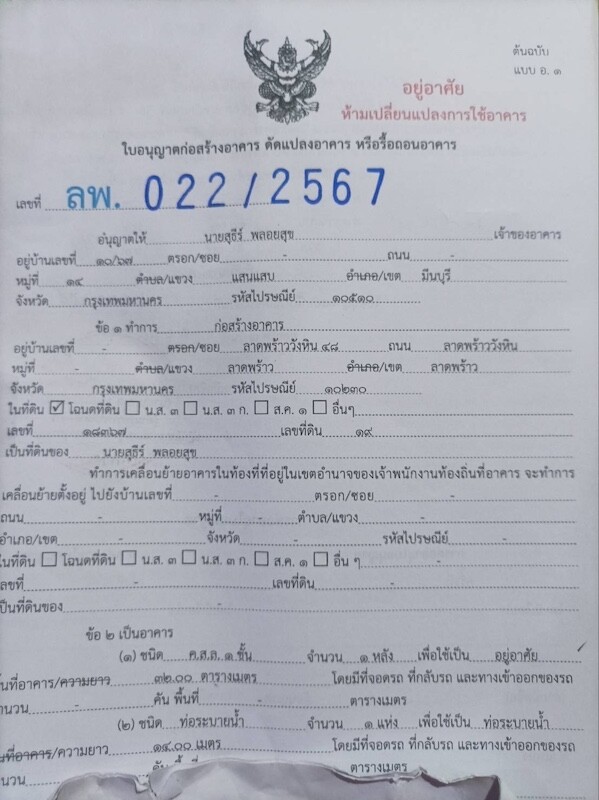 ต้นฉบับ
แบบ อ. ๑
อยู่อาศัย
ห้ามเปลี่ยนแปลงการใช้อาคาร
ใบอนุญาตก่อสร้างอาคาร ดัดแปลงอาคาร หรือรื้อถอนอาคาร
เลขที่ ลพ. 022/2567
อนุญาตให้ นายสุธีร์ พลอยสุข เจ้าของอาคาร
อยู่บ้านเลขที่ ๑๐/๖๗ ตรอก/ซอย - ถนน -
หมู่ที่ ๑๔ ตำบล/แขวง แสนแสบ อำเภอ/เขต มีนบุรี
จังหวัด กรุงเทพมหานคร รหัสไปรษณีย์ ๑๐๕๑๐
ข้อ ๑ ทำการ ก่อสร้างอาคาร
อยู่บ้านเลขที่ - ตรอก/ซอย ลาดพร้าววังหิน ๔๘ ถนน ลาดพร้าววังหิน
หมู่ที่ - ตำบล/แขวง ลาดพร้าว อำเภอ/เขต ลาดพร้าว
จังหวัด กรุงเทพมหานคร รหัสไปรษณีย์ ๑๐๒๓๐
ในที่ดิน ☑ โฉนดที่ดิน ☐ น.ส. ๓ ☐ น.ส. ๓ ก. ☐ ส.ค. ๑ ☐ อื่นๆ
เลขที่ ๑๘๓๖๗ เลขที่ดิน ๑๙
เป็นที่ดินของ นายสุธีร์ พลอยสุข
ทำการเคลื่อนย้ายอาคารในท้องที่ที่อยู่ในเขตอำนาจของเจ้าพนักงานท้องถิ่นที่อาคาร จะทำการ
เคลื่อนย้ายตั้งอยู่ ไปยังบ้านเลขที่ - ตรอก/ซอย -
ถนน - หมู่ที่ - ตำบล/แขวง -
อำเภอ/เขต - จังหวัด - รหัสไปรษณีย์ -
ในที่ดิน ☐ โฉนดที่ดิน ☐ น.ส. ๓ ☐ น.ส. ๓ ก. ☐ ส.ค. ๑ ☐ อื่น ๆ -
เลขที่ - เลขที่ดิน -
เป็นที่ดินของ -
ข้อ ๒ เป็นอาคาร
(๑) ชนิด ค.ส.ล. ๑ ชั้น จำนวน ๑ หลัง เพื่อใช้เป็น อยู่อาศัย
พื้นที่อาคาร/ความยาว ๓๒.๐๐ ตารางเมตร โดยมีที่จอดรถ ที่กลับรถ และทางเข้าออกของรถ
จำนวน - คัน พื้นที่ - ตารางเมตร
(๒) ชนิด ท่อระบายน้ำ จำนวน ๑ แห่ง เพื่อใช้เป็น ท่อระบายน้ำ
พื้นที่อาคาร/ความยาว ๑๔.๐๐ เมตร โดยมีที่จอดรถ ที่กลับรถ และทางเข้าออกของรถ
จำนวน คัน ตารางเมตร